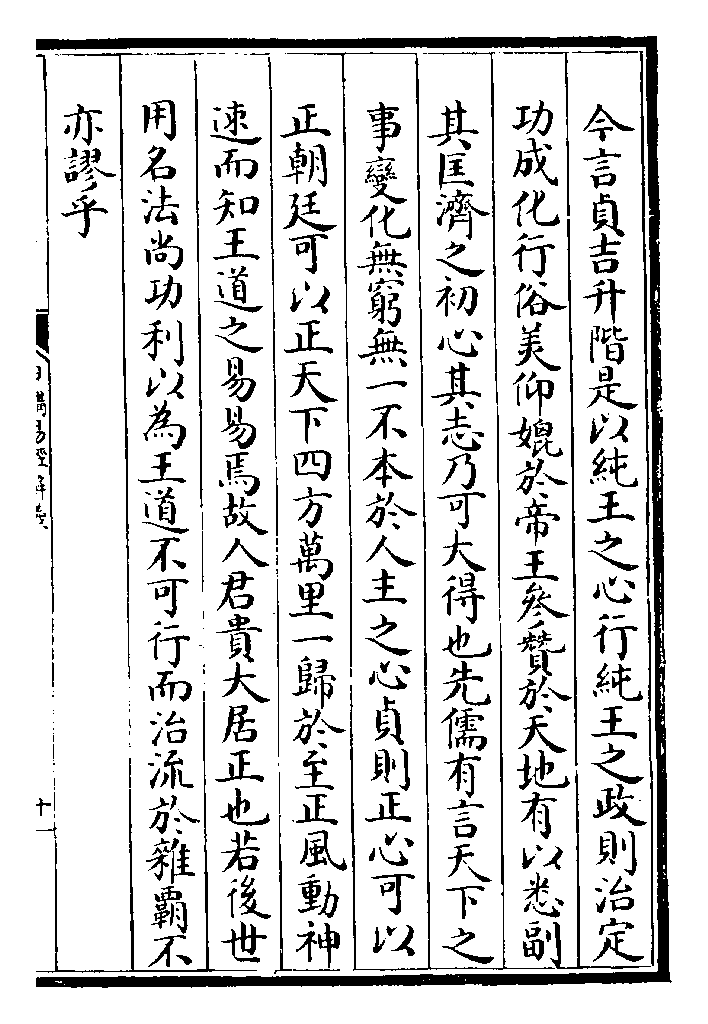 今言貞吉升階是以純王之心行純王之政則治定
功成化行俗美仰媲於帝王參贊於天地有以悉副
其匡濟之初心其志乃可大得也先儒有言天下之
事變化無窮無一不本於人主之心貞則正心可以
正朝廷可以正天下四方萬里一歸於至正風動神
速而知王道之易易焉故人君貴大居正也若後世
用名法尚功利以為王道不可行而治流於雜霸不
亦謬乎
日講易經解義
十一